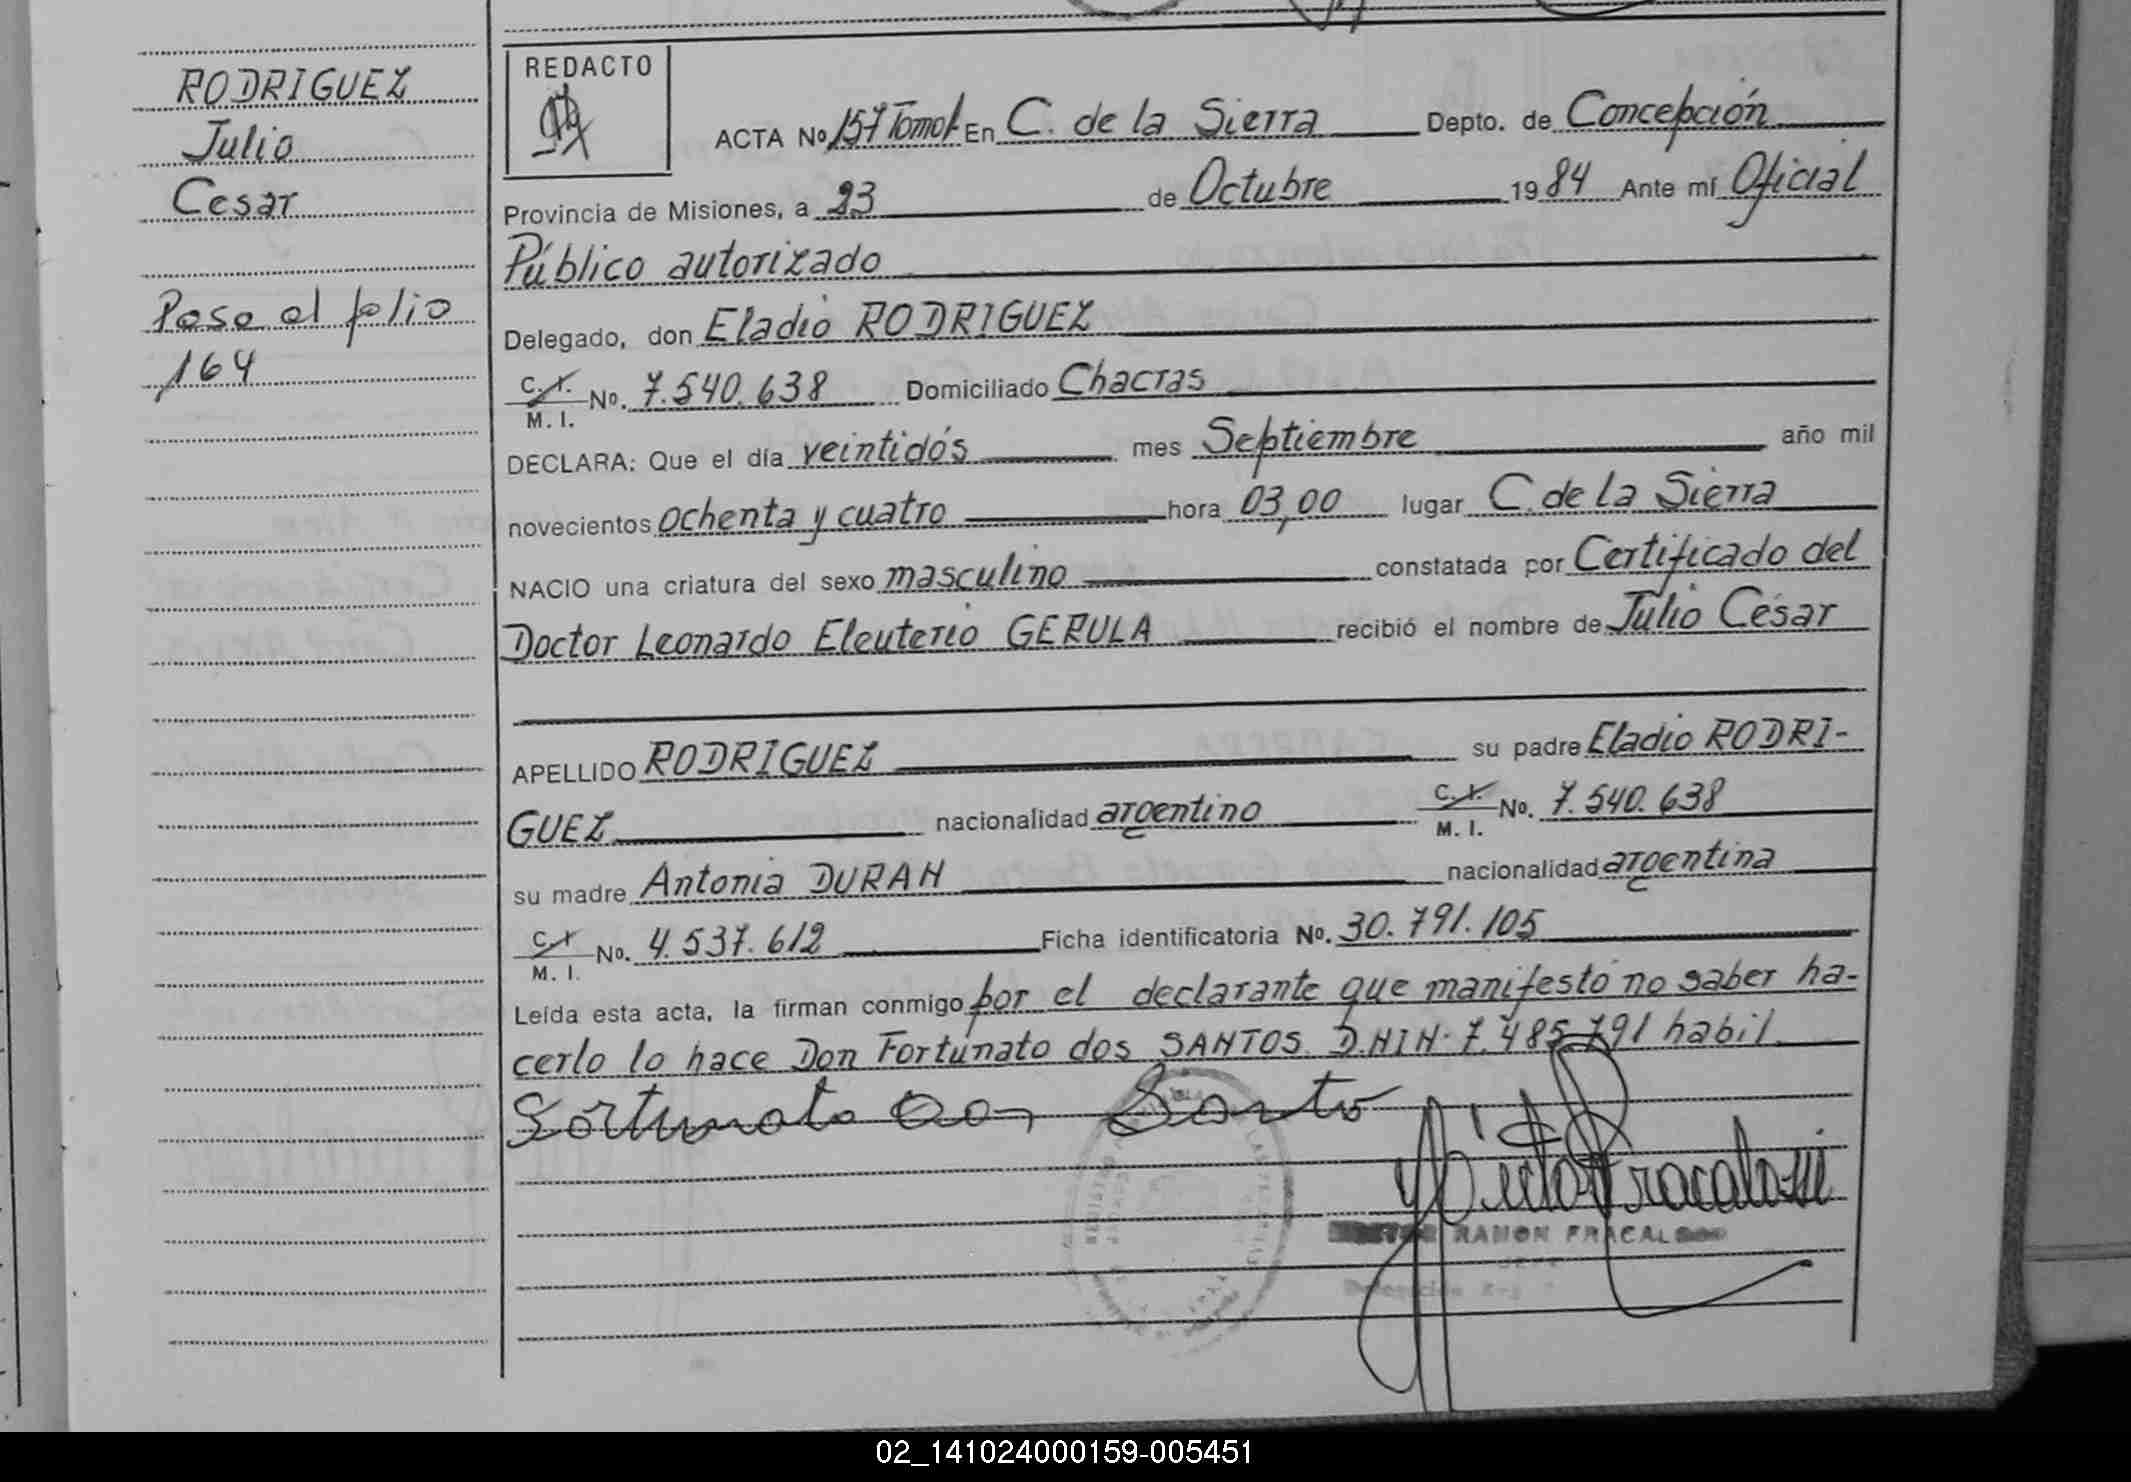 RODRIGUEZ
Julio
Cesar
Pasa al folio
164
REDACTO
ACTA No 157 Tomo I En C. de la Sierra Depto. de Concepción
Provincia de Misiones, a 23 de Octubre 1984 Ante mí Oficial
Público autorizado
Delegado, don Eladio RODRIGUEZ
C. I.
M. I. No. 7.540.638 Domiciliado Chacras
DECLARA: Que el día veintidós mes Septiembre año mil
novecientos ochenta y cuatro hora 03,00 lugar C. de la Sierra
NACIO una criatura del sexo masculino constatada por Certificado del
Doctor Leonardo Eleuterio GERULA recibió el nombre de Julio César
APELLIDO RODRIGUEZ su padre Eladio RODRI-
GUEZ nacionalidad argentino C. I. M. I. No. 7.540.638
su madre Antonia DURAN nacionalidad argentina
C. I.
M. I. No. 4.537.612 Ficha identificatoria No. 30.791.105
Leída esta acta, la firman conmigo por el declarante que manifestó no saber ha-
cerlo lo hace Don Fortunato dos SANTOS D.N.I N° 7.485.791 habil.
Fortunato Dos Santo
RAMON FRACAL
02_141024000159-005451